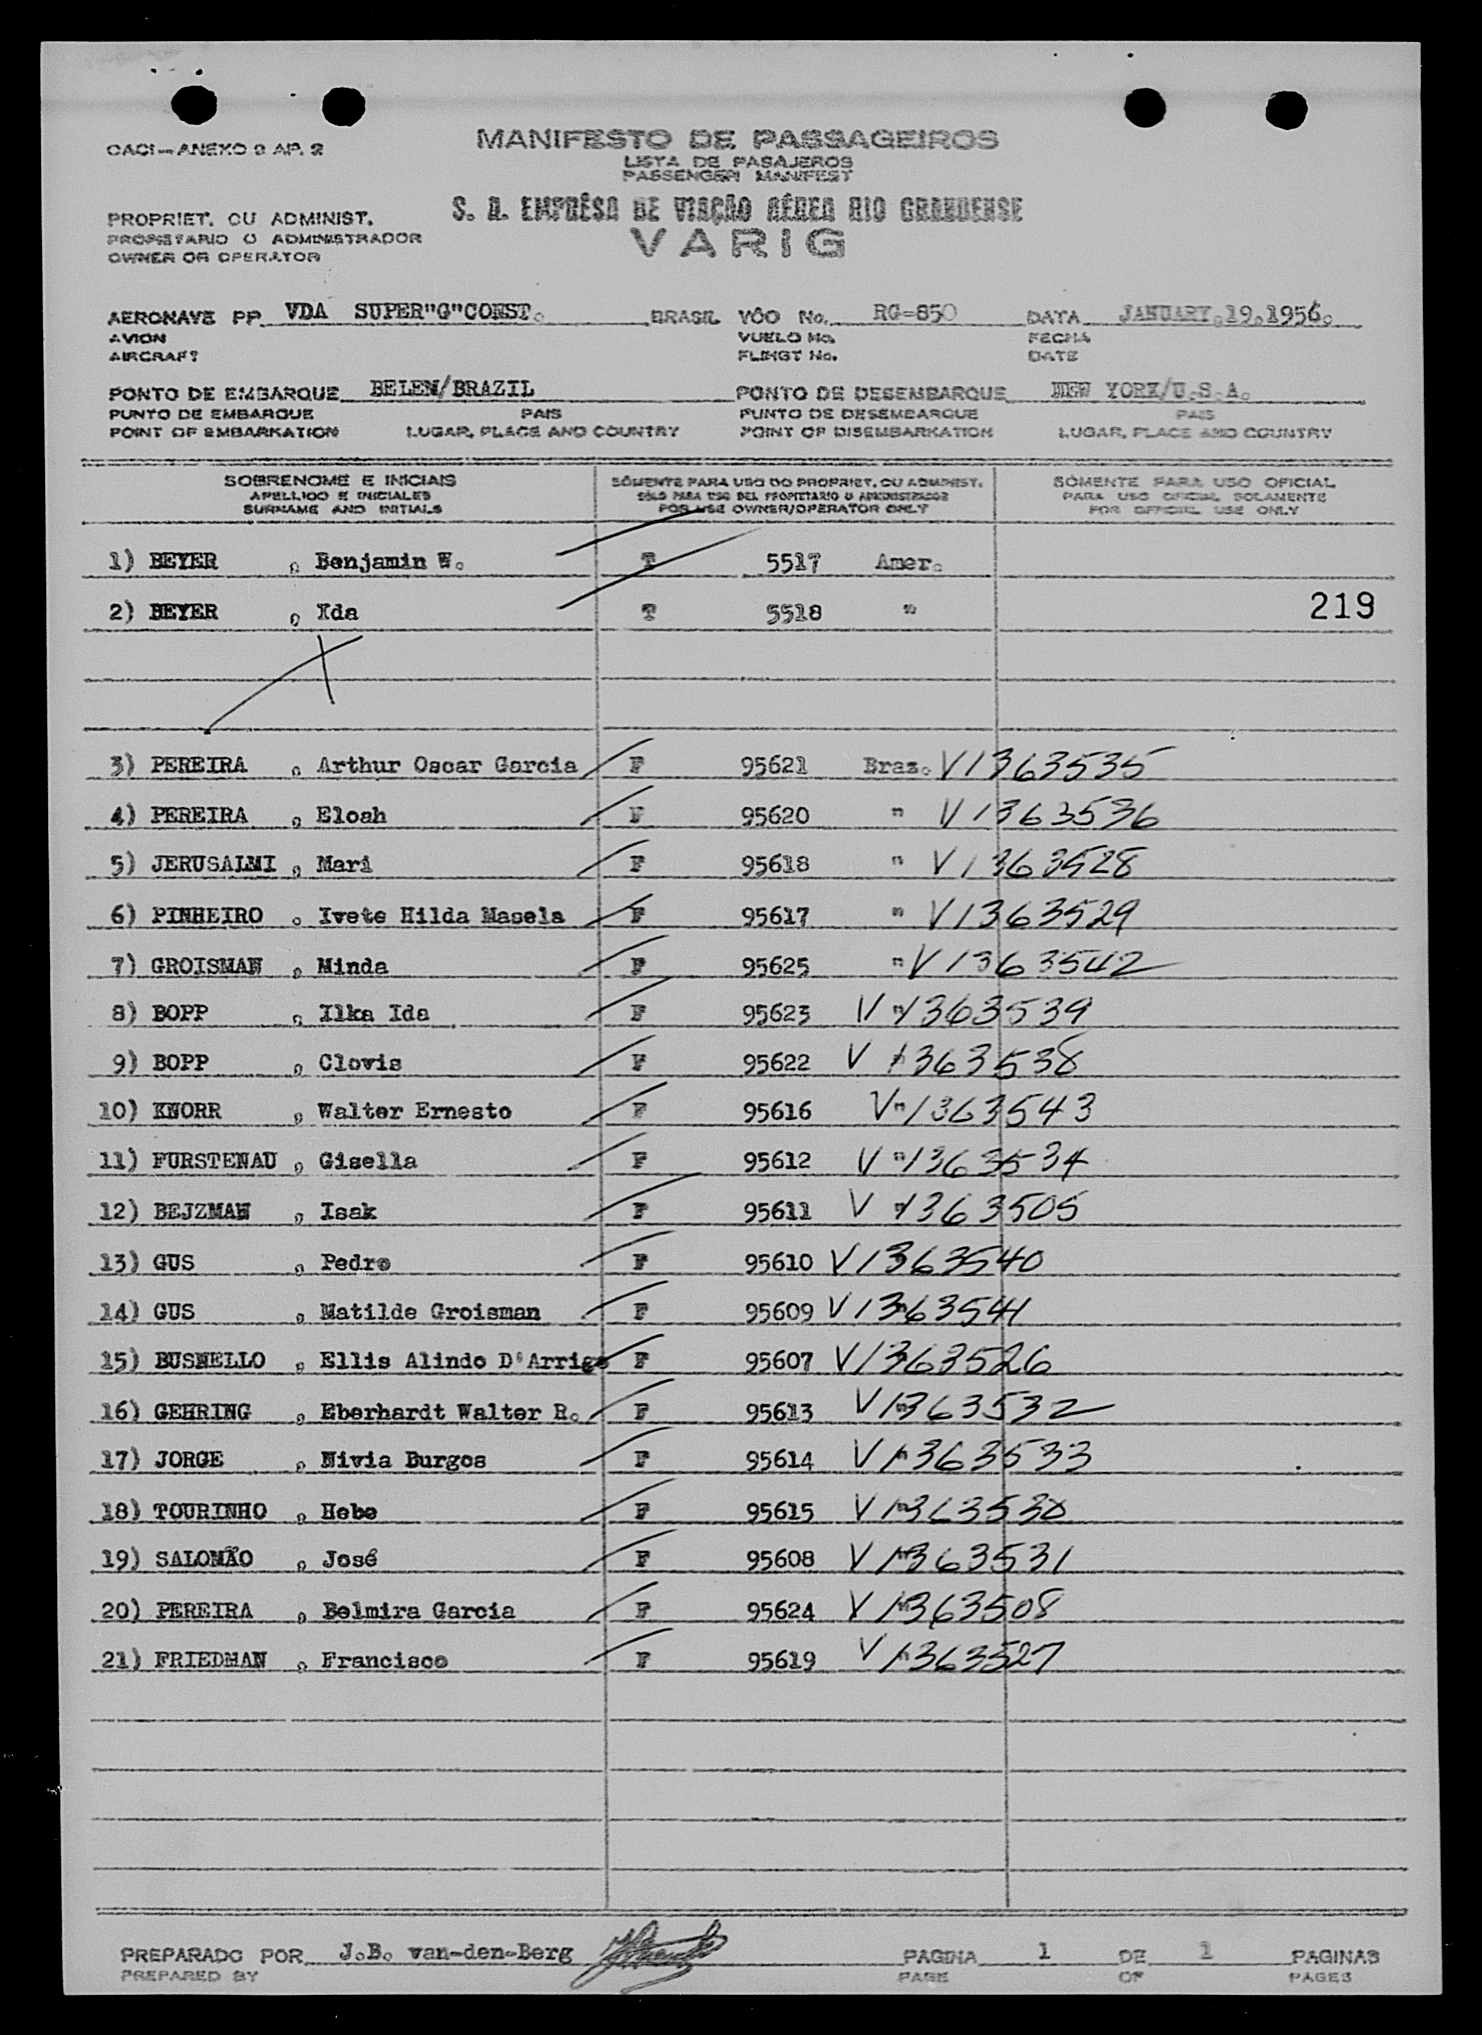 MANIFESTO DE PASSAGEIROS
CACI — ANEXO 9 AP. 2
LISTA DE PASAJEROS
PASSENGER MANIFEST
S. A. EMPRÊSA DE VIAÇÃO AÉREA RIO GRANDENSE
PROPRIET. OU ADMINIST.
PROPIETARIO O ADMINISTRADOR
OWNER OR OPERATOR
VARIG
AERONAVE PP VDA SUPER"G"CONST. BRASIL VÔO No. RG-850 DATA JANUARY.19.1956.
AVION VUELO No. FECHA
AIRCRAFT FLIHGT No. DATE
PONTO DE EMBARQUE BELEM/BRAZIL PONTO DE DESEMBARQUE NEW YORK/U.S.A.
PUNTO DE EMBARQUE PAIS PUNTO DE DESEMBARQUE PAIS
POINT OF EMBARKATION LUGAR, PLACE AND COUNTRY POINT OF DISEMBARKATION LUGAR, PLACE AND COUNTRY
SOBRENOME E INICIAIS SÓMENTE PARA USO DO PROPRIET. OU ADMINIST. SÓMENTE PARA USO OFICIAL
APELLIDO E INICIALES SÓLO PARA USO DEL PROPIETARIO O ADMINISTRADOR PARA USO OFICIAL SOLAMENTE
SURNAME AND INITIALS FOR USE OWNER/OPERATOR ONLY FOR OFFICIAL USE ONLY
1) BEYER , Benjamin W. T 5517 Amer.
2) BEYER , Ida T 5518 " 219
3) PEREIRA , Arthur Oscar Garcia F 95621 Braz. V1363535
4) PEREIRA , Eloah F 95620 " V1363536
5) JERUSALMI , Mari F 95618 " V1363528
6) PINHEIRO , Ivete Hilda Masela F 95617 " V1363529
7) GROISMAN , Minda F 95625 " V1363542
8) BOPP , Ilka Ida F 95623 " V1363539
9) BOPP , Clovis F 95622 " V1363538
10) KNORR , Walter Ernesto F 95616 " V1363543
11) FURSTENAU , Gisella F 95612 " V1363534
12) BEJZMAN , Isak F 95611 " V1363505
13) GUS , Pedro F 95610 " V1363540
14) GUS , Matilde Groisman F 95609 " V1363541
15) BUSNELLO , Ellis Alindo D'Arrigo F 95607 " V1363526
16) GEHRING , Eberhardt Walter R. F 95613 " V1363532
17) JORGE , Nivia Burgos F 95614 " V1363533
18) TOURINHO , Hebe F 95615 " V1363530
19) SALOMÃO , José F 95608 " V1363531
20) PEREIRA , Belmira Garcia F 95624 " V1363508
21) FRIEDMAN , Francisco F 95619 " V1363527
PREPARADO POR J.B. van-den-Berg PAGINA 1 DE 1 PAGINAS
PREPARED BY PAGE OF PAGES